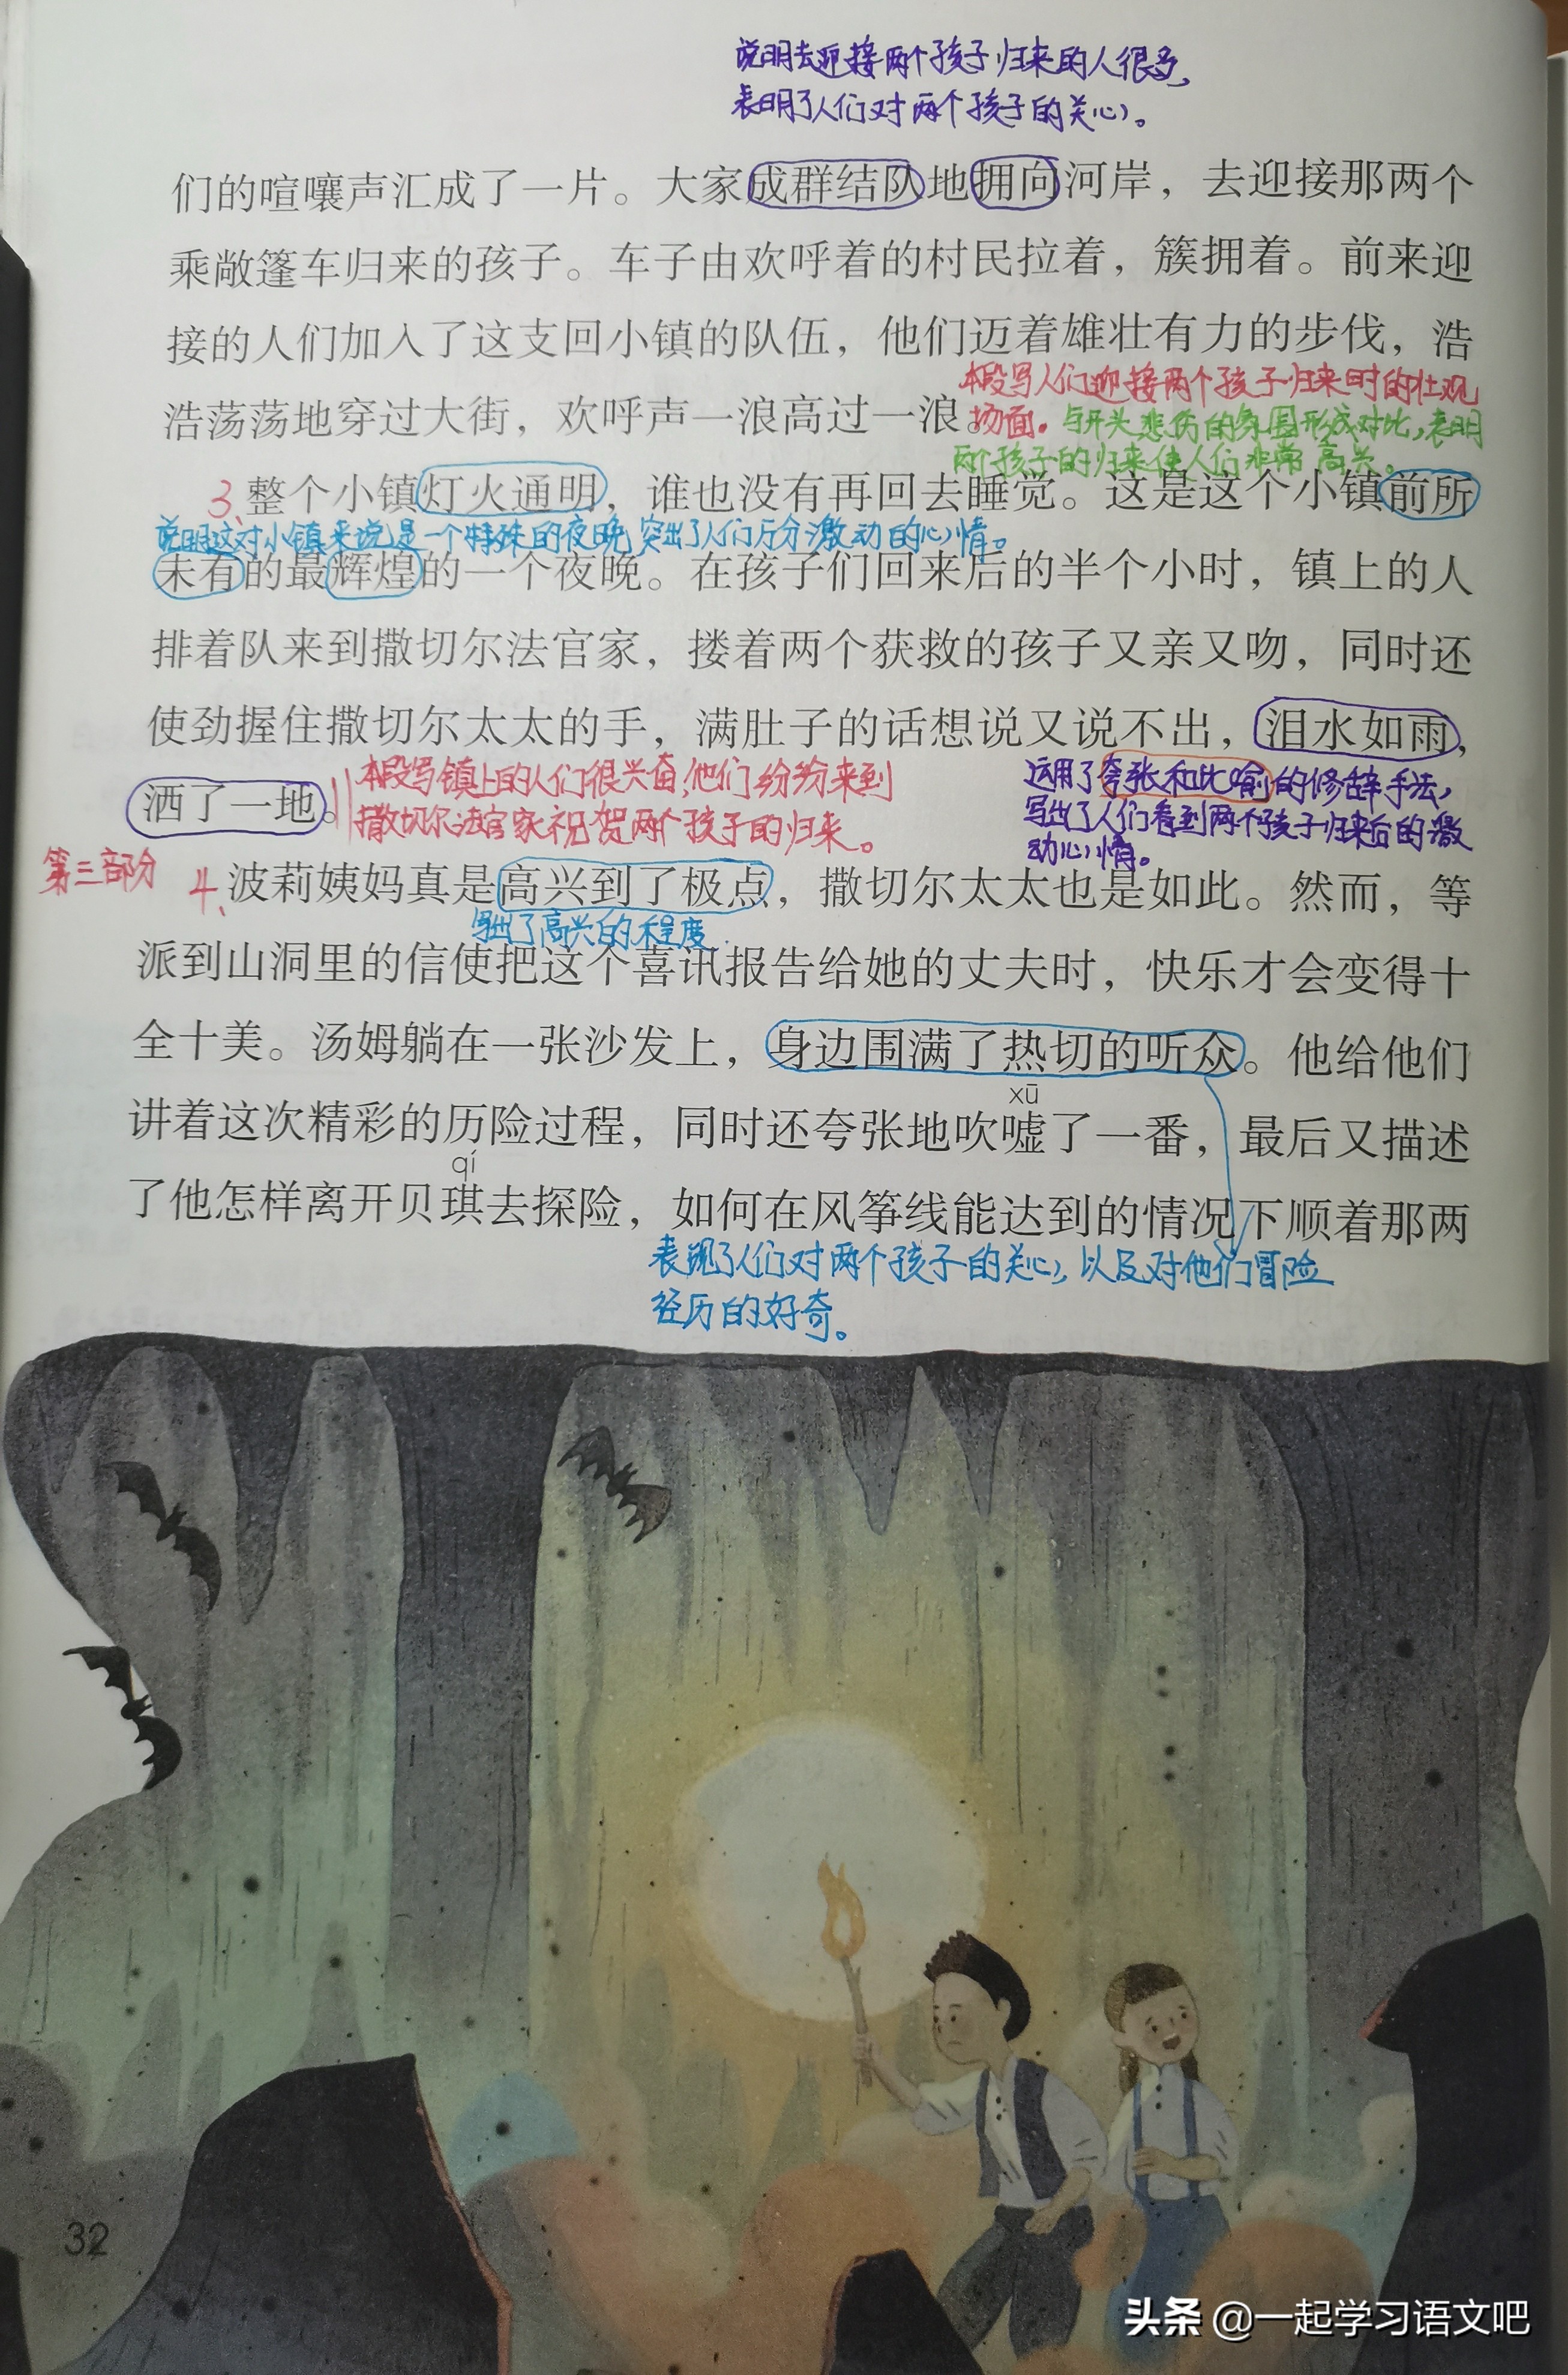 说明去迎接两个孩子归来的人很多，
表明了人们对两个孩子的关心。
们的喧嚷声汇成了一片。大家成群结队地拥向河岸，去迎接那两个
乘敞篷车归来的孩子。车子由欢呼着的村民拉着，簇拥着。前来迎
接的人们加入了这支回小镇的队伍，他们迈着雄壮有力的步伐，浩
本段写人们迎接两个孩子归来时的壮观
浩荡荡地穿过大街，欢呼声一浪高过一浪。
场面。与开头悲伤的氛围形成对比，表明
两个孩子的归来使人们非常高兴。
3、整个小镇灯火通明，谁也没有再回去睡觉。这是这个小镇前所
说明这对小镇来说是一个特殊的夜晚，突出了人们万分激动的心情。
未有的最辉煌的一个夜晚。在孩子们回来后的半个小时，镇上的人
排着队来到撒切尔法官家，搂着两个获救的孩子又亲又吻，同时还
使劲握住撒切尔太太的手，满肚子的话想说又说不出，泪水如雨，
洒了一地。
本段写镇上的人们很兴奋，他们纷纷来到
撒切尔法官家祝贺两个孩子的归来。
运用了夸张和比喻的修辞手法，
写出了人们看到两个孩子归来后的激
动心情。
第三部分
4、波莉姨妈真是高兴到了极点，撒切尔太太也是如此。然而，等
写出了高兴的程度
派到山洞里的信使把这个喜讯报告给她的丈夫时，快乐才会变得十
全十美。汤姆躺在一张沙发上，身边围满了热切的听众。他给他们
xū
讲着这次精彩的历险过程，同时还夸张地吹嘘了一番，最后又描述
qí
了他怎样离开贝琪去探险，如何在风筝线能达到的情况下顺着那两
表现了人们对两个孩子的关心，以及对他们冒险
经历的好奇。
32
头条 @一起学习语文吧